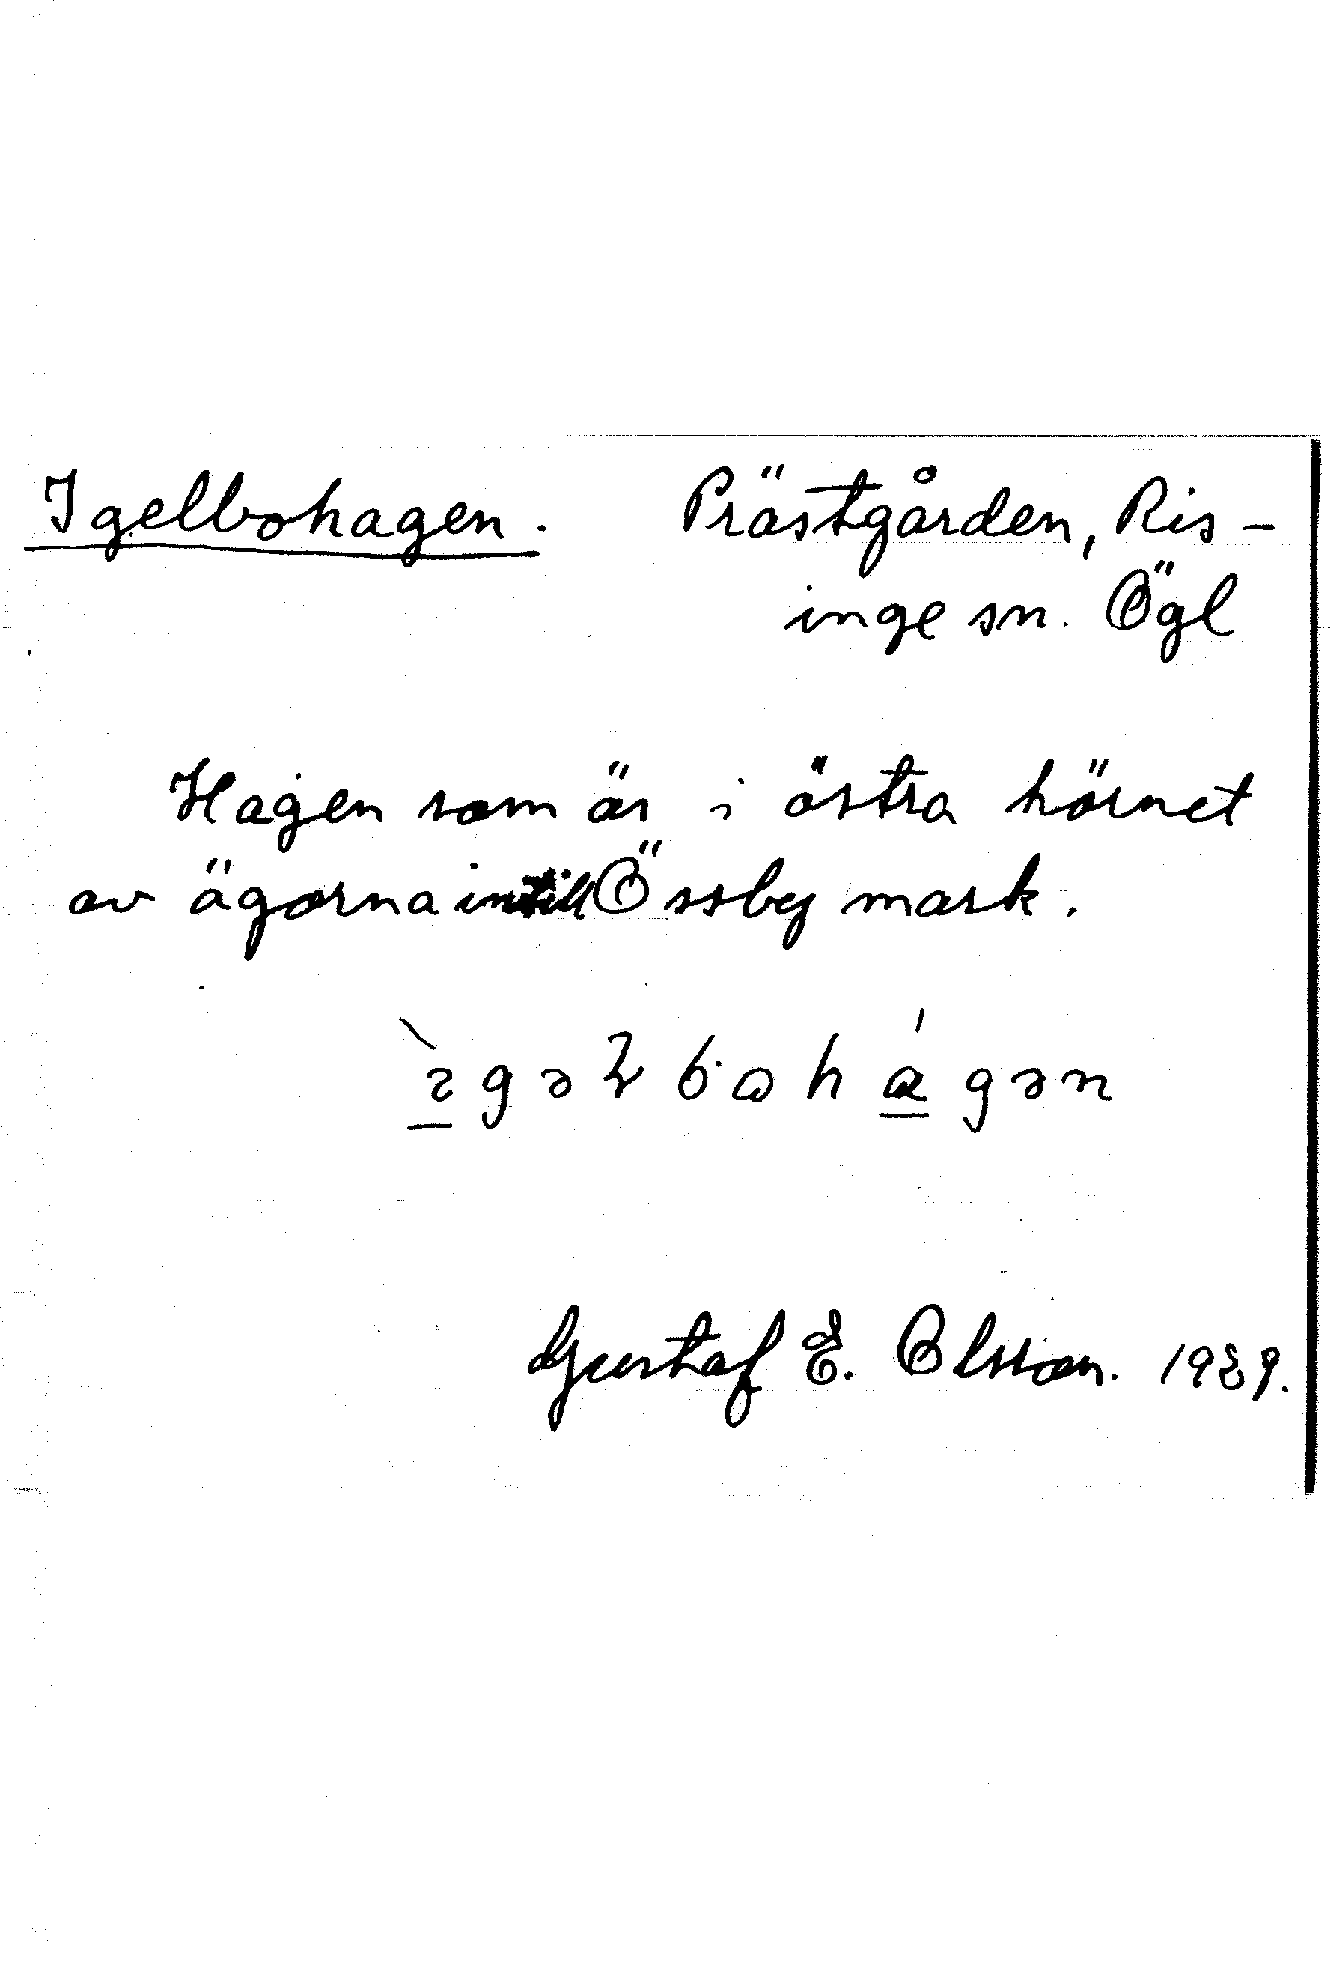 Igelbohagen. Prästgården, Ris-
inge sn. Ögl
Hagen som är i östra hörnet
av ägorna intill Össby mark.
Gustaf E. Olsson. 1929.